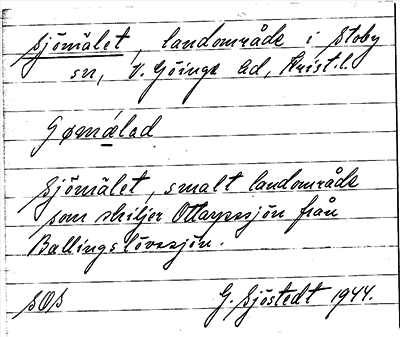 Sjömälet, landområde i Stoby
sn, V. Göinge hd, Krist. l.
Sjömälet, smalt landområde
som skiljer Ottarpssjön från
Ballingslövssjön.
SOS G. Sjöstedt 1944.